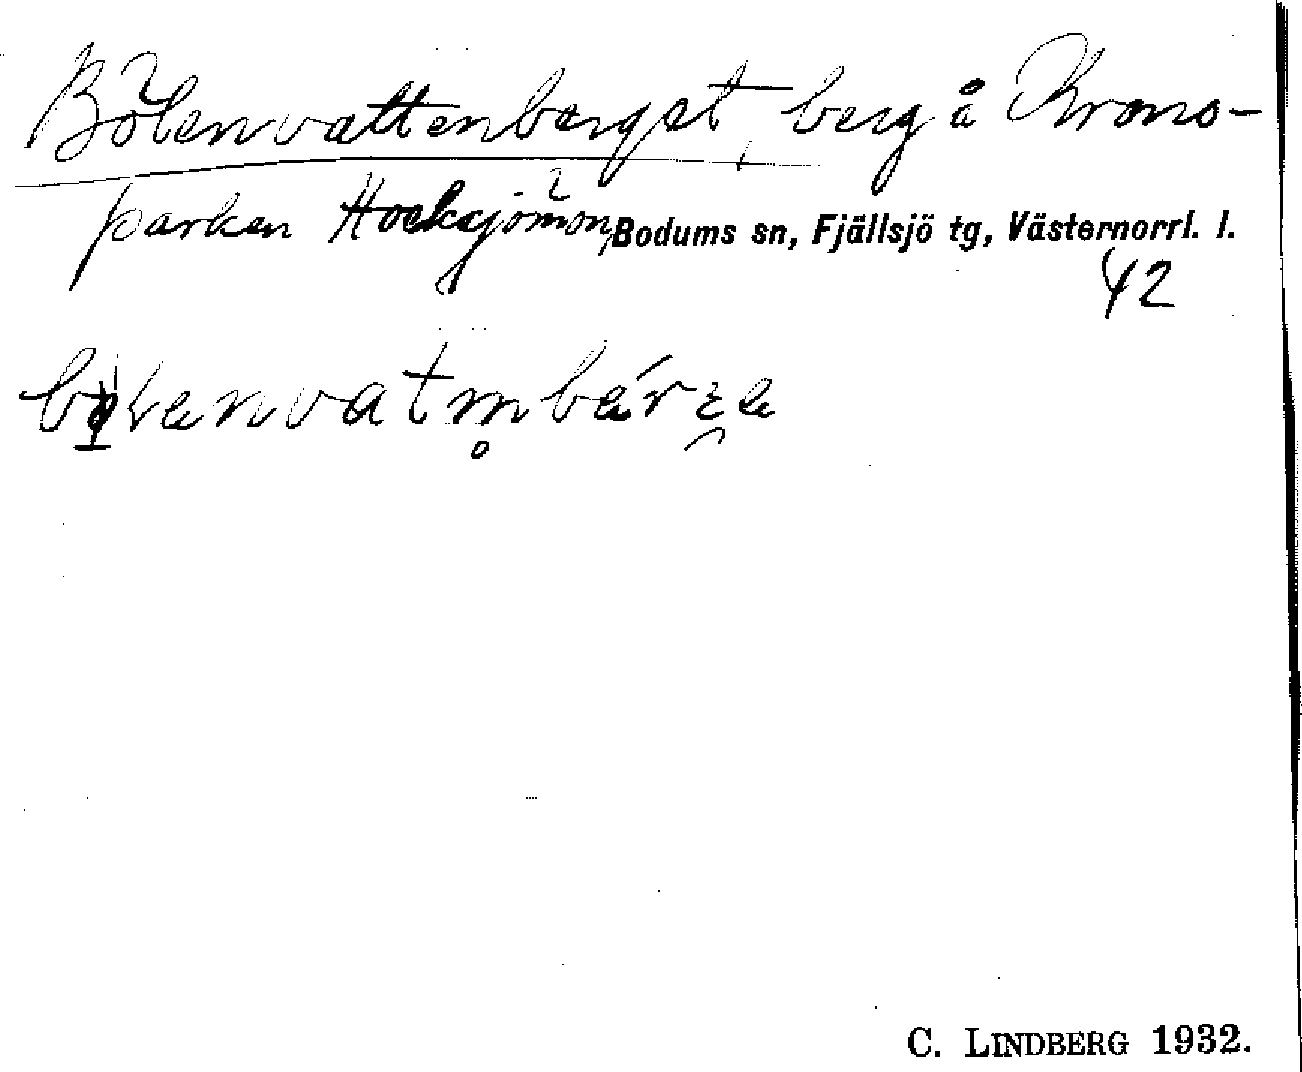 Bölenvattenberget, berg å Krono-
parken Hocksjömon, Bodums sn, Fjällsjö tg, Västernorrl. l.
42
C. LINDBERG 1932.